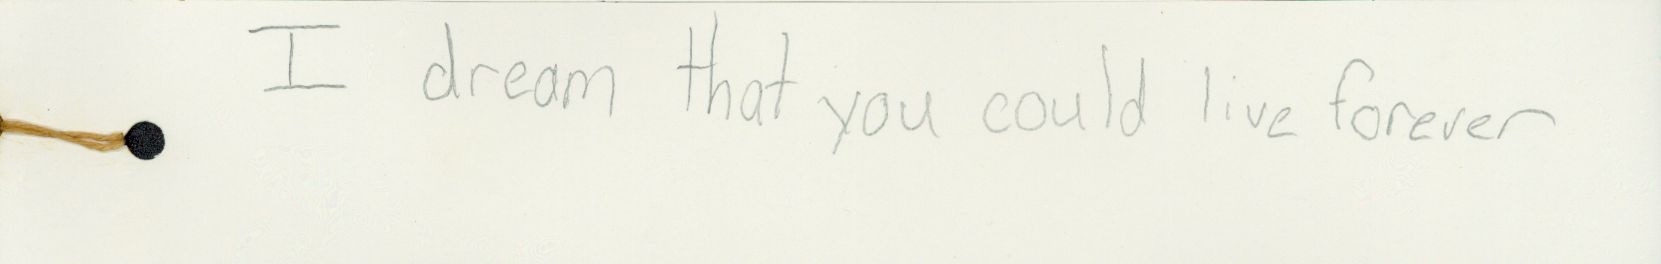 I dream that you could live forever